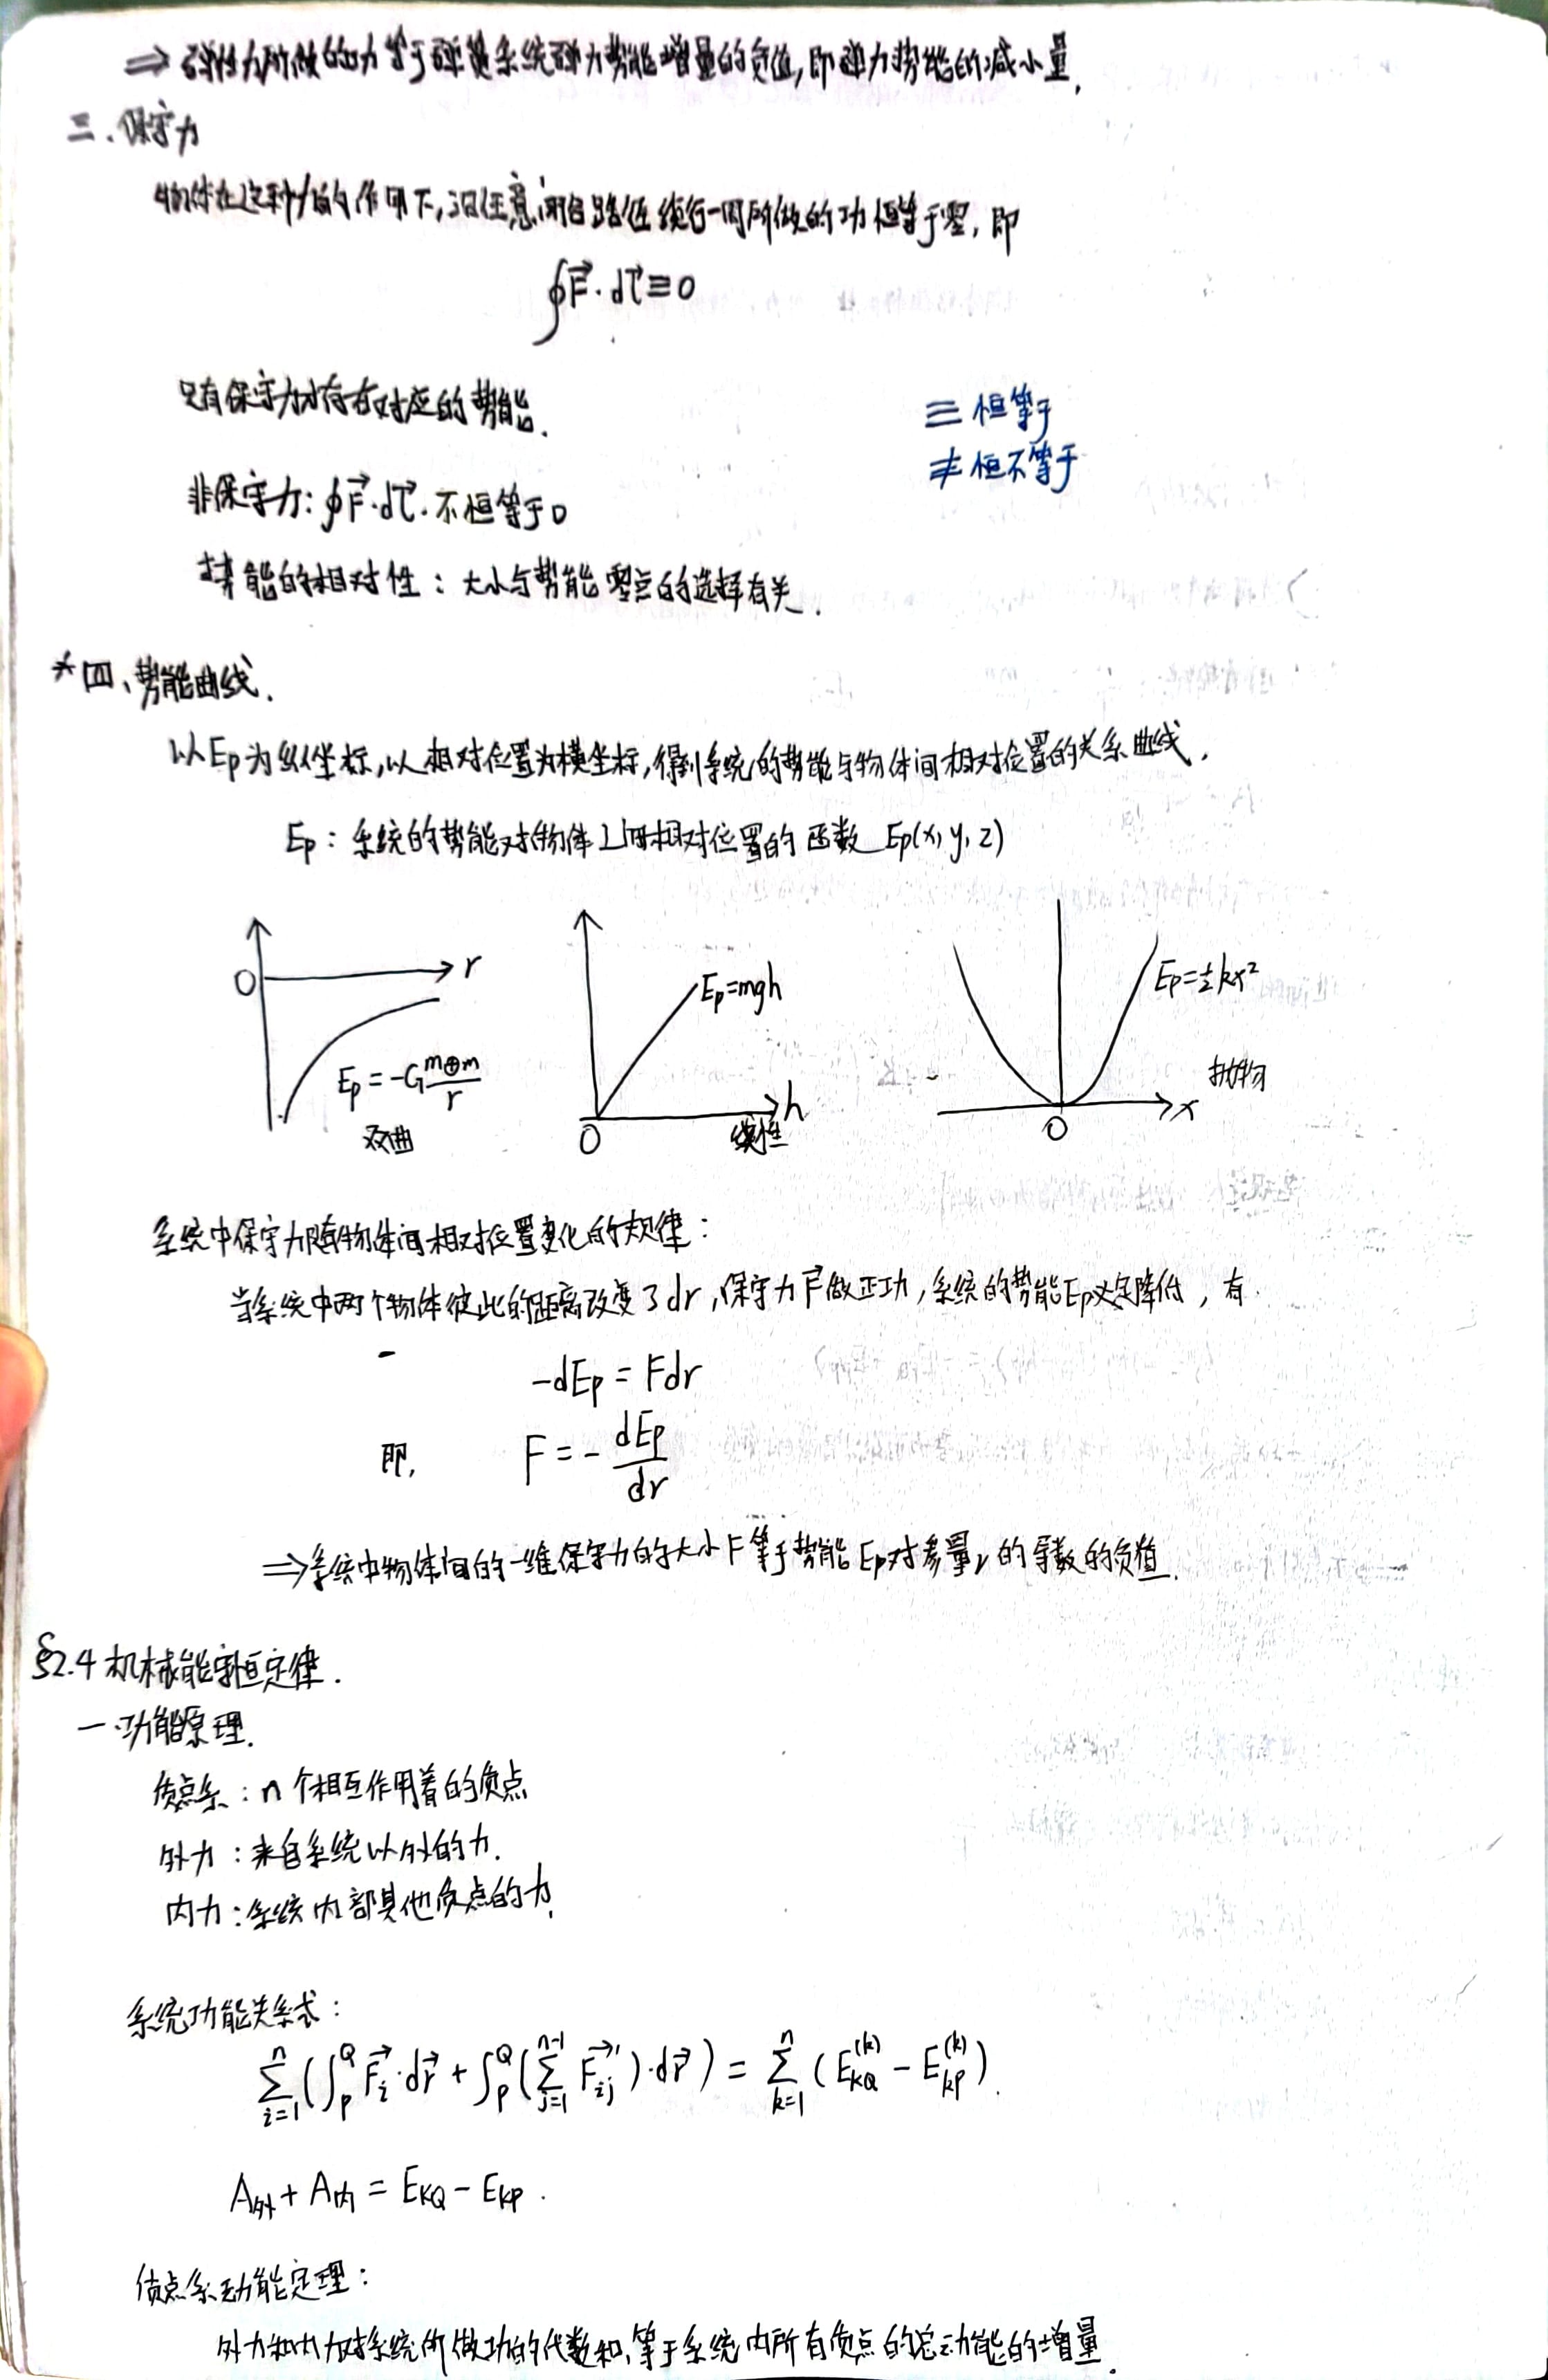 ⇒ 弹性力所做的功等于弹簧系统弹力势能增量的负值,即弹力势能的减小量.
三.保守力
物体在这种力的作用下,沿任意闭合路径绕行一周所做的功恒等于零,即
∮F⃗·dl⃗≡0
只有保守力才存在对应的势能.
≡ 恒等于
≢ 恒不等于
非保守力:∮F⃗·dl⃗.不恒等于0
势能的相对性:大小与势能零点的选择有关.
*四、势能曲线.
以Ep为纵坐标,以相对位置为横坐标,得到系统的势能与物体间相对位置的关系曲线.
Ep:系统的势能对物体之间相对位置的函数 Ep(x,y,z)
O r
Ep=-G m⊕m/r
双曲
Ep=mgh
O h
线性
Ep=½kx²
抛物
O x
系统中保守力随物体间相对位置变化的规律:
当系统中两个物体彼此的距离改变了dr,保守力F⃗做正功,系统的势能Ep必定降低,有
-dEp=Fdr
即, F=-dEp/dr
⇒系统中物体间的一维保守力的大小F等于势能Ep对参量r的导数的负值.
§2.4 机械能守恒定律.
一.功能原理.
质点系:n个相互作用着的质点
外力:来自系统以外的力.
内力:系统内部其他质点的力.
系统功能关系式:
∑ⁿᵢ₌₁(∫_P^Q F⃗ᵢ·dr⃗+∫_P^Q(∑ⁿ⁻¹ⱼ₌₁ F⃗ᵢⱼ')·dr⃗)=∑ⁿₖ₌₁(E_kQ^(k)-E_kP^(k)).
A外+A内=E_KQ-E_KP.
质点系动能定理:
外力和内力对系统所做功的代数和,等于系统内所有质点的总动能的增量.